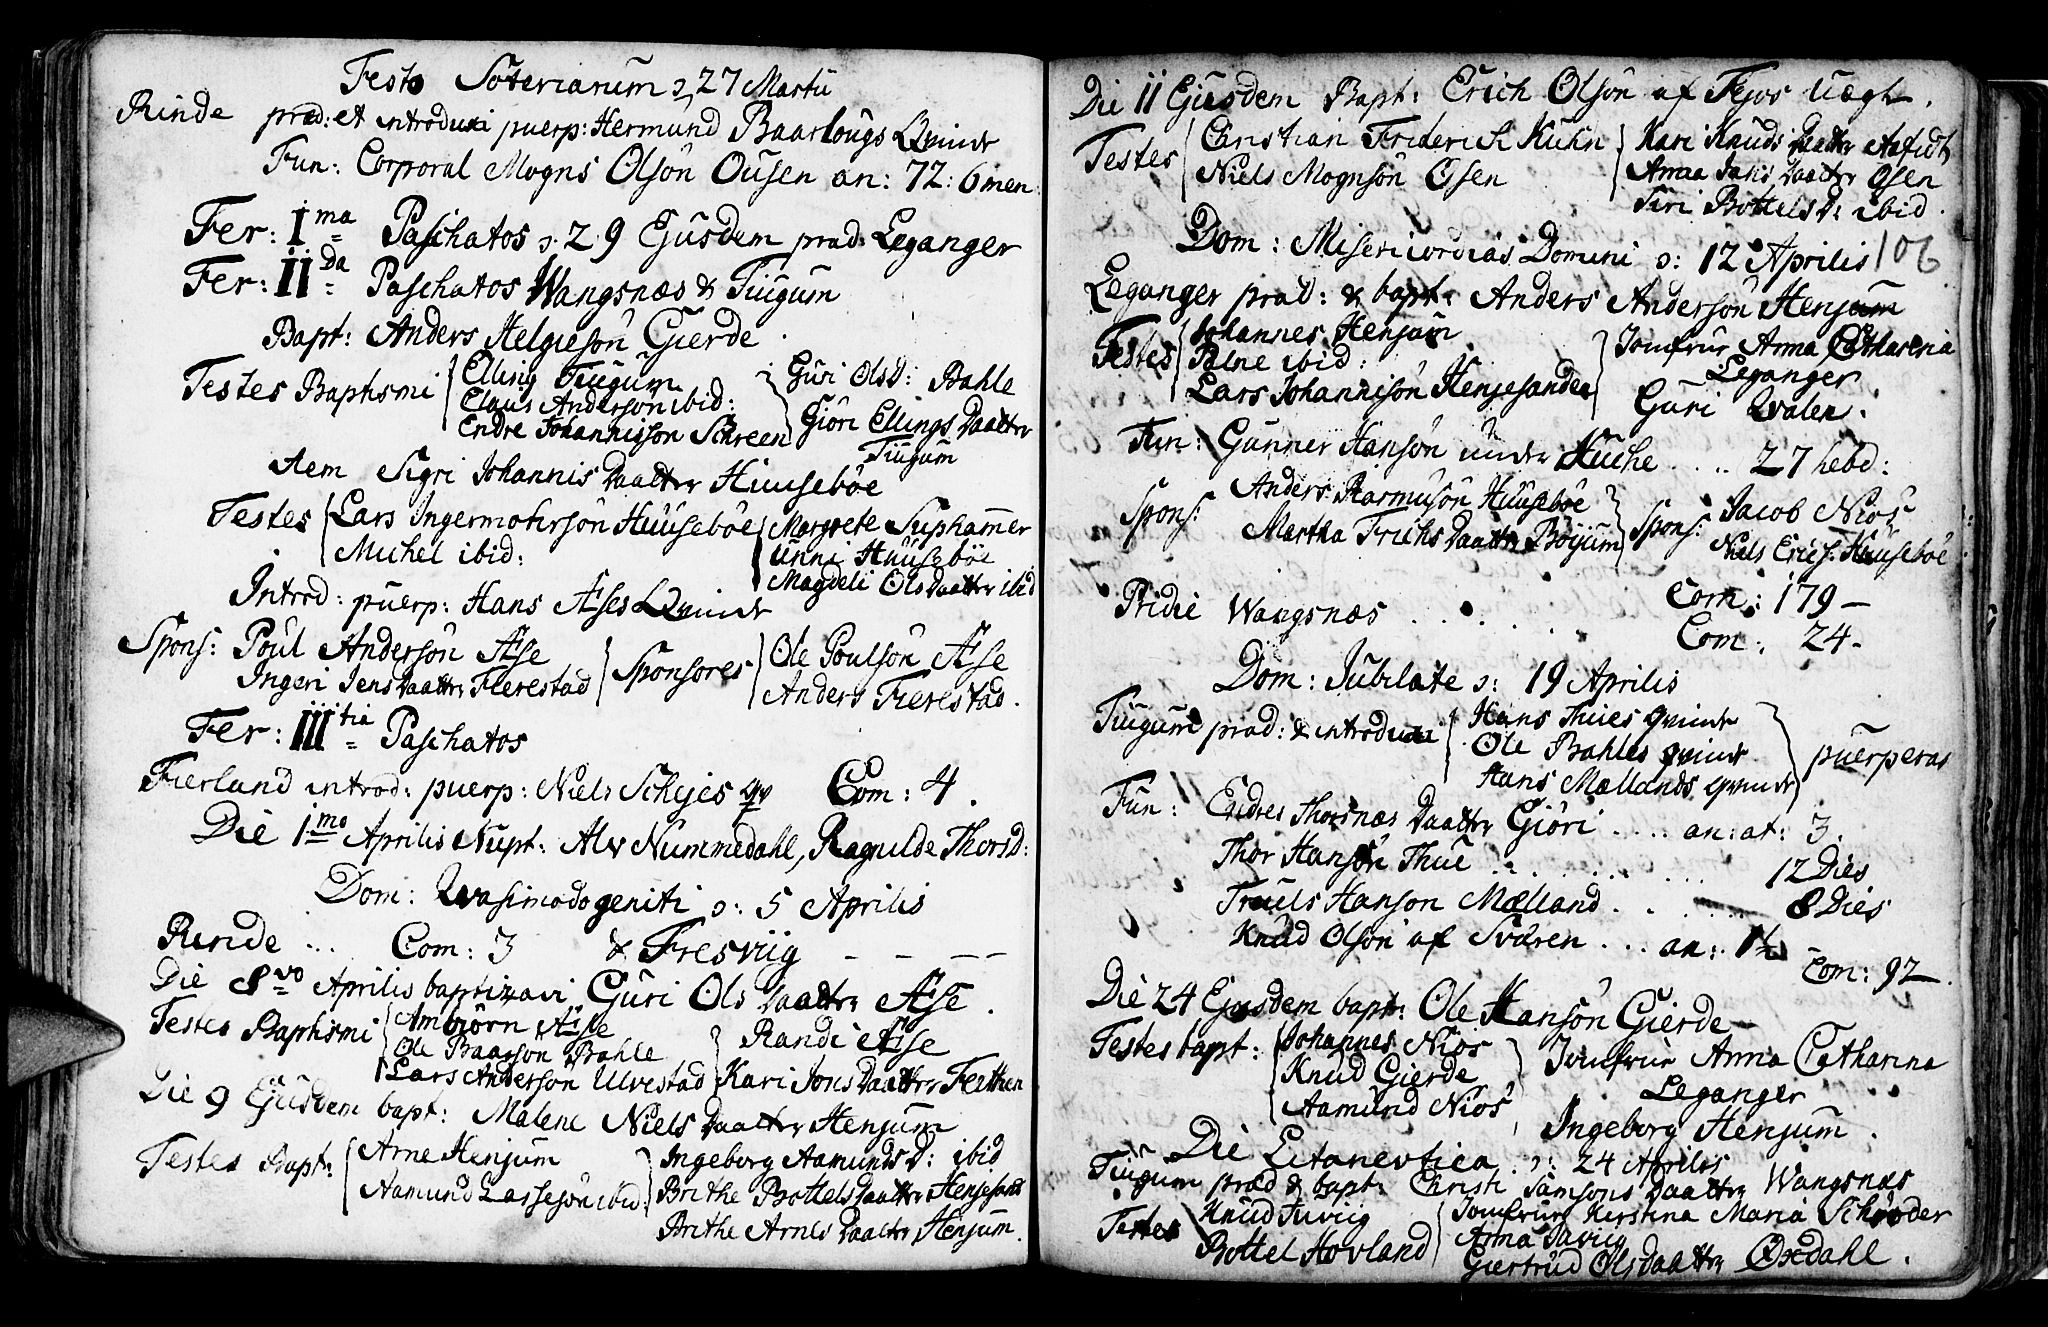 Festo Soteriarum ɔ 27 Martii
Rinde præd: et introduxi puerp: Hermund Baarlougs Qvinde
Fun: Corporal Mogns Olsön Ousen an: 72: 6 men
Fer: I ma Paschatos ɔ: 29 Ejusdem præd: Leganger
Fer: II Da Paschatos Wangsnæs & Tiugum
Bapt: Anders Helgiesön Gierde
Testes Baptismi
Elling Tiugum
Claus Andersön ibid:
Endre Johannisson Schreen
Guri OlsD: Bahle
Giöri Ellings Daatter
Tiugum
Item Sigri Johannis Daatter Huuseböe
Testes
Lars Ingermohrsön Huuseböe
Michel ibid:
Margrete Suphammer
Unni Huuseböe
Magdeli Olsdaatter ibid
Introd: puerp: Hans Æses Qvinde
Spons: Poul Andersön Æse
Ingeri Jens Daatter Fierestad
Sponsores
Ole Poulsön Æse
Anders Fierestad.
Fer: III tia Paschatos
Fierland introd: puerp: Niels Schejes qv Com: 4.
Die 1mo Aprilis Nupt: Alv Nummedahl, Ragnilde ThorsD:
Dom: Qvasimodogeniti ɔ: 5 Aprilis
Rinde ... Com: 3 & Fresviig - - - -
Die 8vo Aprilis baptizavi Guri Ols Daatter Æse.
Testes Baptismi
Ambiörn Æse
Ole Baarsön Bahle
Lars Anderson Ulvestad
Randi Æse
Kari Jons Daatter Ferthen
Die 9 Ejusdem bapt: Malene Niels Daatter Henjum
Testes Bapt:
Arne Henjum
Aamund Lassesön ibid:
Ingeborg Aamunds D: ibid
Brithe Bottels Daatter Henjesand
Brithe Arnes Daatter Henjum.
Die 11 Ejusdem Bapt: Erich Olsön af Fejos
Testes
Christian Friderich Kuhn
Niels Mognsön Osen
Kari Knuds Daatter
Anna Jans Daatter Osen
Siri Bottels D: ibid.
Dom: Misericordias Domini ɔ: 12 Aprilis
106
Leganger præd: & bapt: Anders Andersön Henjum
Testes
Johannes Henjum
Palne ibid:
Lars Johannisön Henjesanden
Jomfrur Anna Catharina
Leganger
Guri Qvalen.
Fun: Gunner Hansön under Huche .... 27 hebd:
Spons:
Anders Rasmusön Huuseböe
Martha Erichs Daatter Böijum
Spons:
Jacob Nios
Niels Erics: Huuseböe
Com: 179 -
Pridie Wangsnæs .....
Com: 24 -
Dom: Jubilate ɔ: 19 Aprilis
Tiugum præd: & introduxi
Hans Thues qvinde
Ole Bahles qvinde
Hans Mællands qvinde
puerperas
Fun: Endres Thorsnæs Daatter Giöri .... an: æt: 3.
Thor Hansön Thue ....... 12 Dies
Truels Hanson Mælland ..... 8 Dies
Knud Olsön af Sværen ... an: 1½
Com: 92.
Die 24 Ejusdem bapt: Ole Hansön Gierde
Testes bapt:
Johannes Nios
Knud Gierde
Aamund Nios
Jomfrue Anna Catharina
Leganger
Ingeborg Henjum.
Die Litanevtica ɔ: 24 Aprilis
Tiugum præd & bapt: Christi Samsons Daatter Wangsnæs
Testes
Knud Tuviig
Bottel Hovland
Jomfrue Kerstina Maria Schröder
Anna Tuviig
Giertrud Olsdaatter Oxdahl.